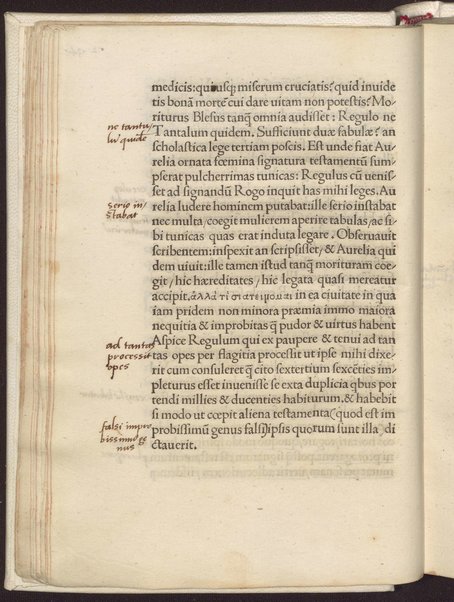 medicis: quousq; miserum cruciatis? quid inuide
tis bonā mortē cui dare uitam non potestis? Mo-
riturus Blesus tanq̄ omnia audisset: Regulo ne
Tantalum quidem. Sufficiunt duæ fabulæ? an
scholastica lege tertiam poscis. Est unde fiat Au
relia ornata fœmina signatura testamentū sum
pserat pulcherrimas tunicas: Regulus cū uenis
set ad signandū Rogo inquit has mihi leges. Au
relia ludere hominem putabat: ille serio instabat
nec multa/ coegit mulierem aperire tabulas/ ac si
bi tunicas quas erat induta legare. Obseruauit
scribentem: inspexit an scripsisset/ & Aurelia qui
dem uiuit: ille tamen istud tanq̄ morituram coe
git/ hic hæreditates/ hic legata quasi mereatur
accipit. ἀλλὰ τί διατείνομαι in ea ciuitate in qua
iam pridem non minora præmia immo maiora
nequitia & improbitas q̄ pudor & uirtus habent
Aspice Regulum qui ex paupere & tenui ad tan
tas opes per flagitia processit ut ipse mihi dixe
rit cum consuleret q̄ cito sextertium sexcēties im
pleturus esset inuenisse se exta duplicia qbus por
tendi millies & ducenties habiturum. & habebit
si modo ut cœpit aliena testamenta (quod est im
probissimū genus falsi) ipsis quorum sunt illa di
ctauerit.
ne tantu/
lū quidē
serio in/
stabat
ad tantas
processit
opes
falsi impro
bissimū ge
nus